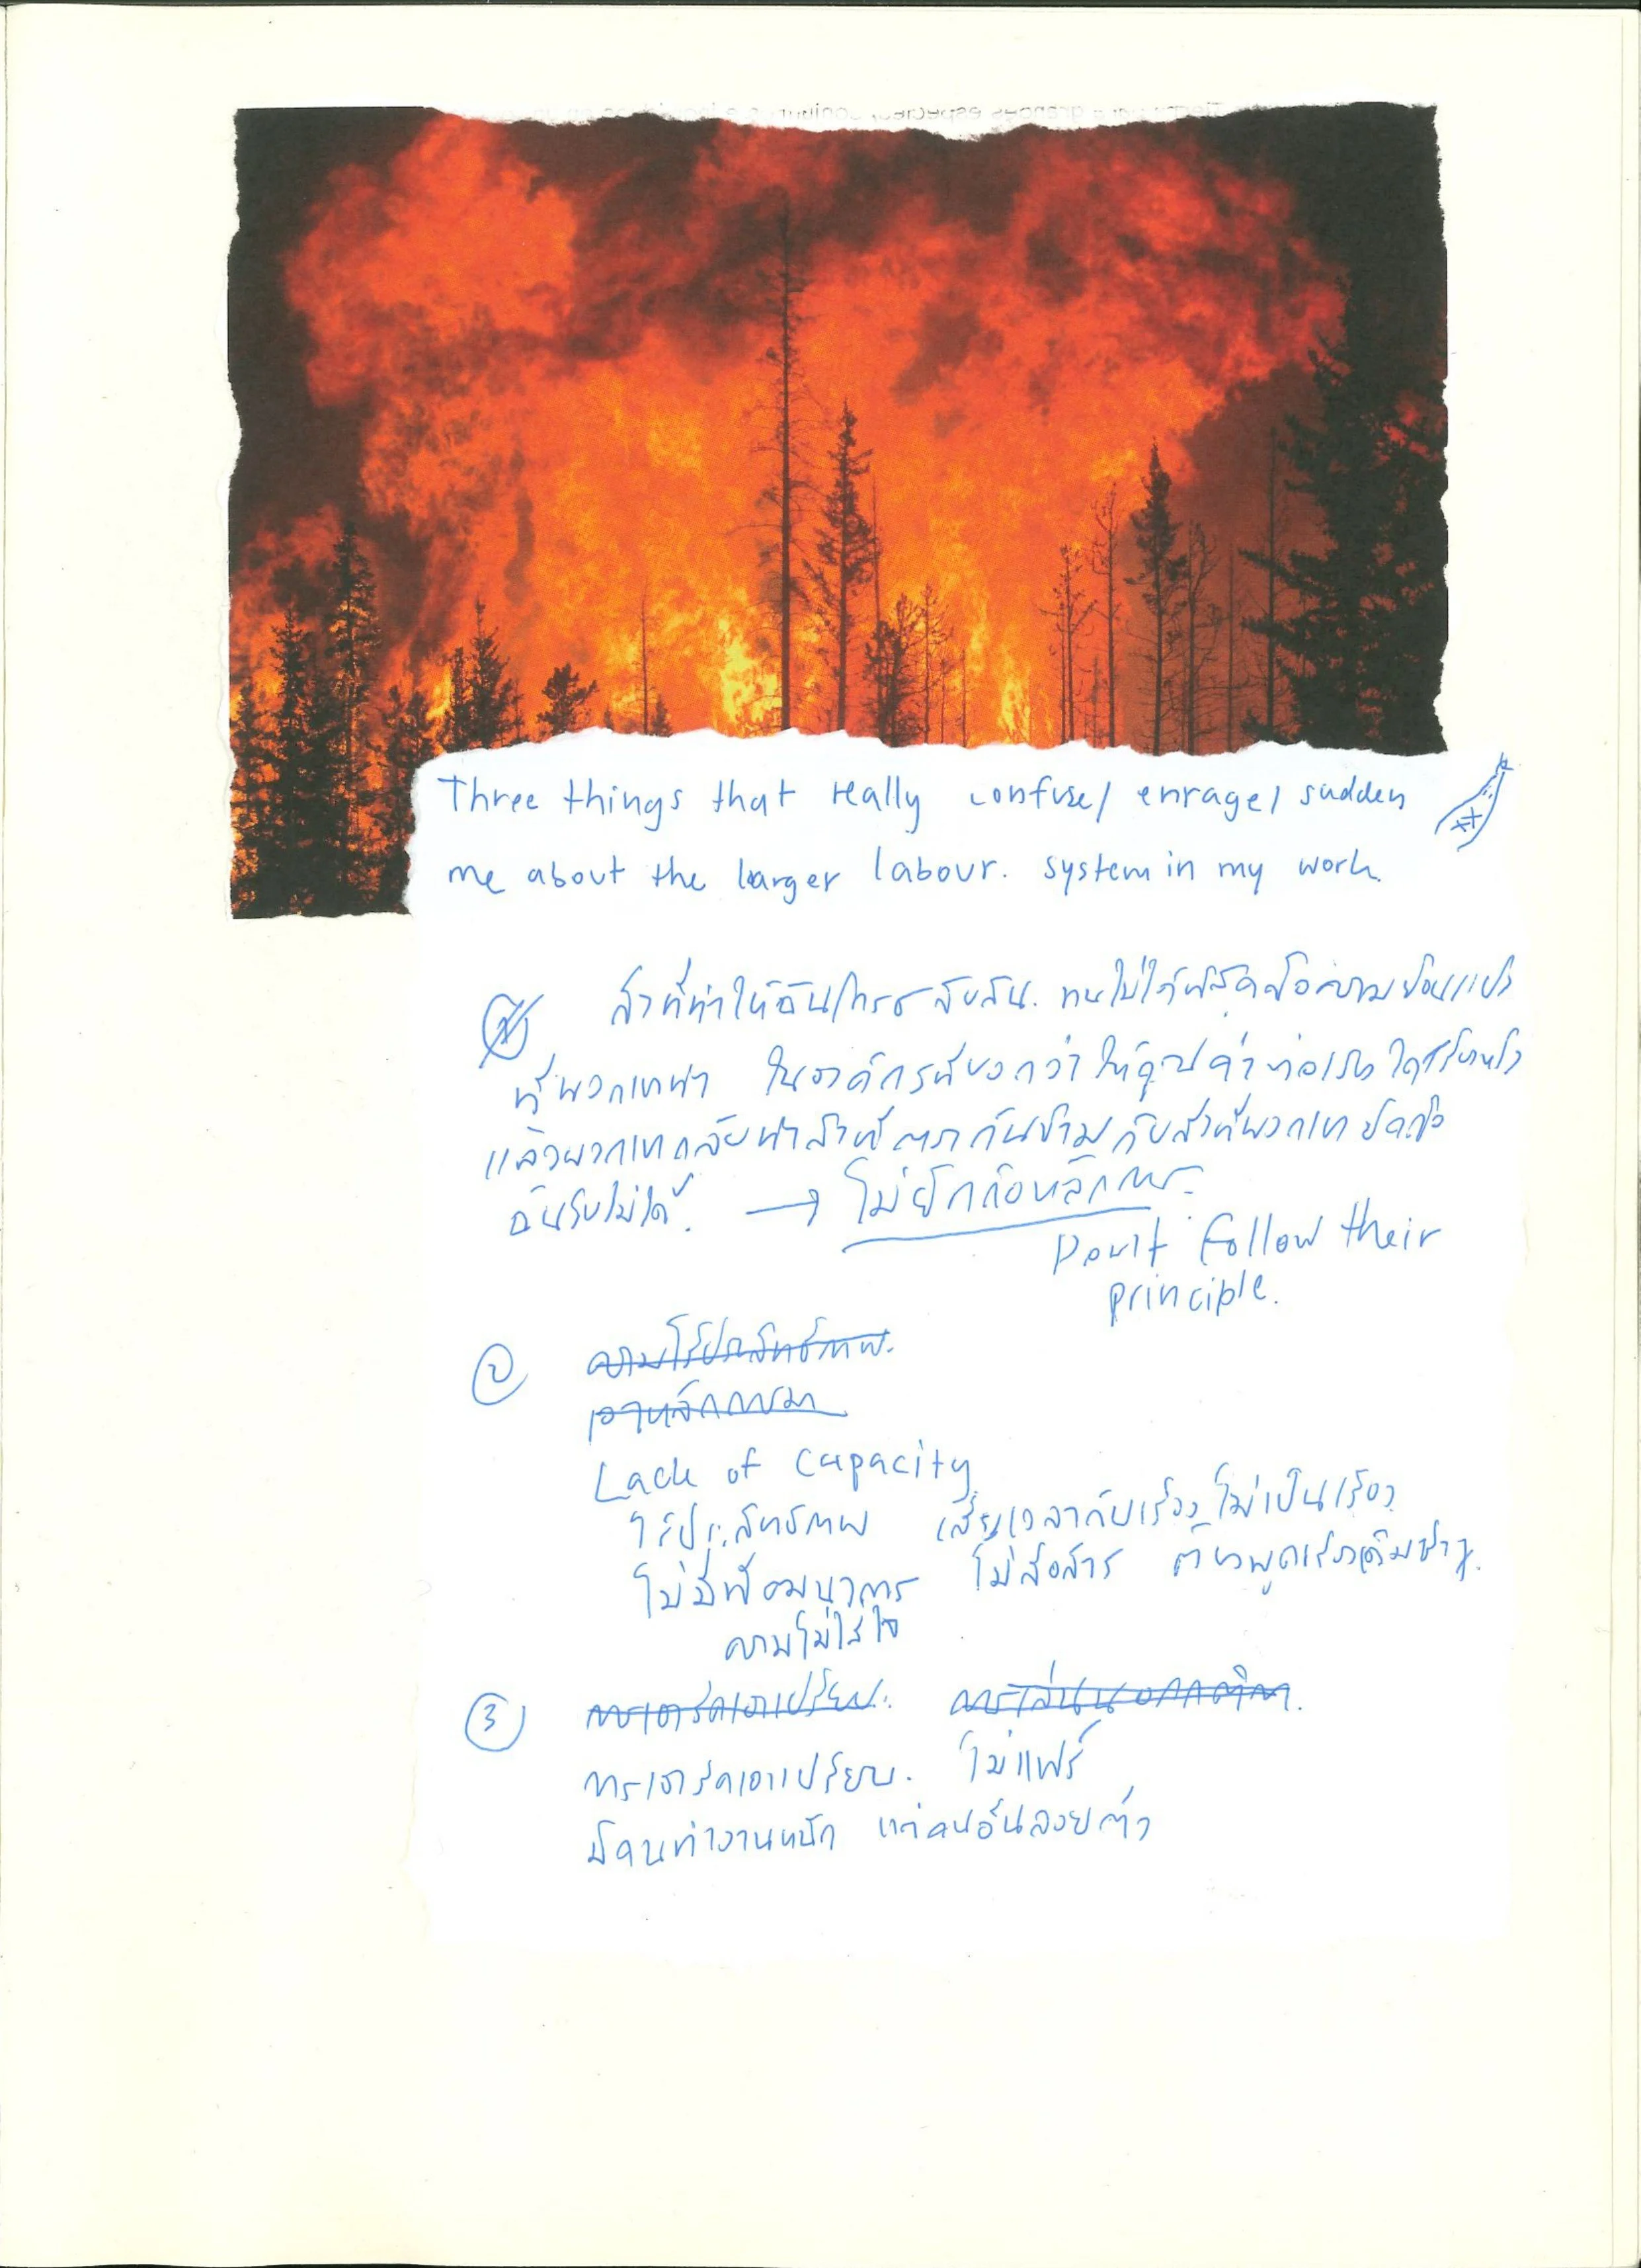 Three things that really confuse/ enrage/ sadden
me about the larger labour. system in my work.
สิ่งที่ทำให้ฉันโกรธ สับสน.
ที่พวกเขาทำ ในองค์กรที่บอกว่าให้คุณค่า
แล้วพวกเขากลับทำสิ่งที่ตรงกันข้ามกับสิ่งที่พวกเขายึดถือ
ฉันรับไม่ได้. → ไม่ยึดถือหลักการ.
Don't follow their
principle.
②
ความไร้ประสิทธิภาพ.
เอาหลักการมา
Lack of capacity
ไร้ประสิทธิภาพ เสียเวลากับเรื่องไม่เป็นเรื่อง
ไม่มีพัฒนาการ ไม่สื่อสาร ต้องพูดเรื่องเดิมซ้ำๆ.
ความไม่ใส่ใจ
③ การเอารัดเอาเปรียบ.
การเอารัดเอาเปรียบ. ไม่แฟร์
มีคนทำงานหนัก แต่คนอื่นลอยตัว